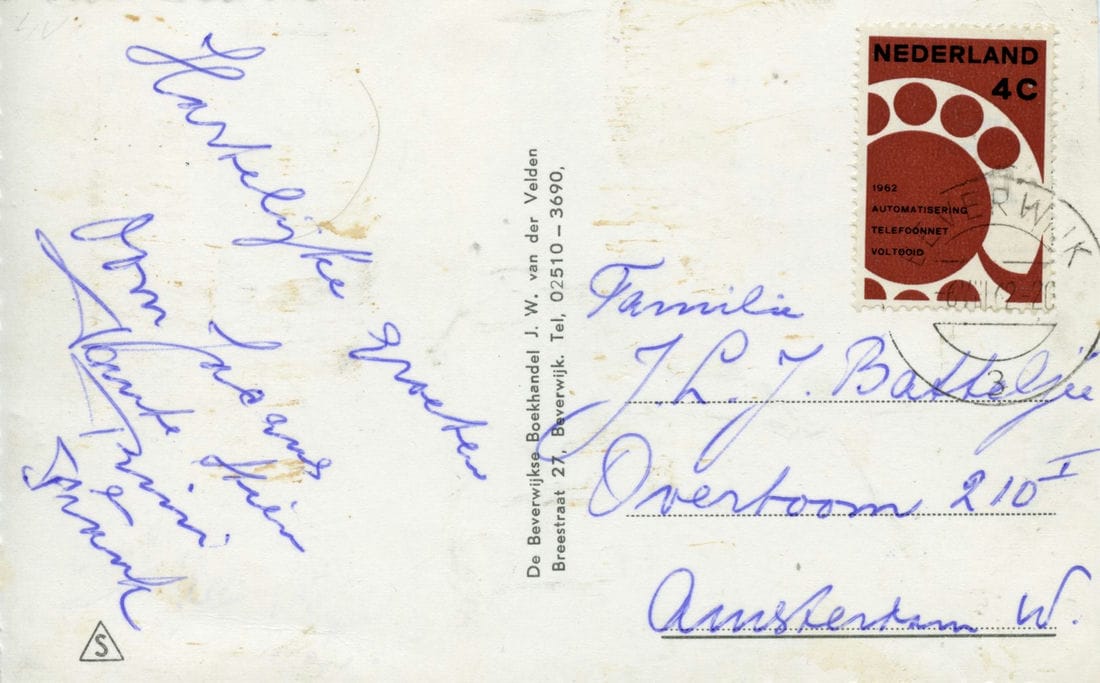 Hartelijke groeten
Oom Sjaans
Tante Stien
Trini
e
Frank
De Beverwijkse Boekhandel J. W. van der Velden
Breestraat 27, Beverwijk. Tel, 02510 – 3690,
NEDERLAND
4C
1962
AUTOMATISERING
TELEFOONNET
VOLTOOID
BEVERWIJK
3
Familie
J. L. J. Batteljee
Overtoom 210 I
Amsterdam W.
S